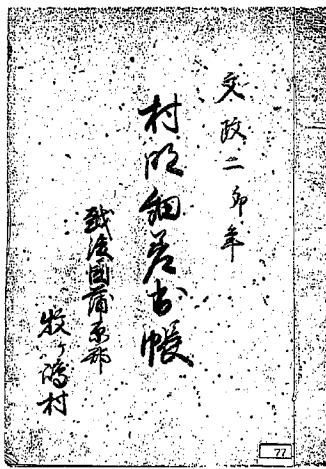 文政二卯年
村明細差出帳
越後國蒲原郡
牧ケ嶋村
77